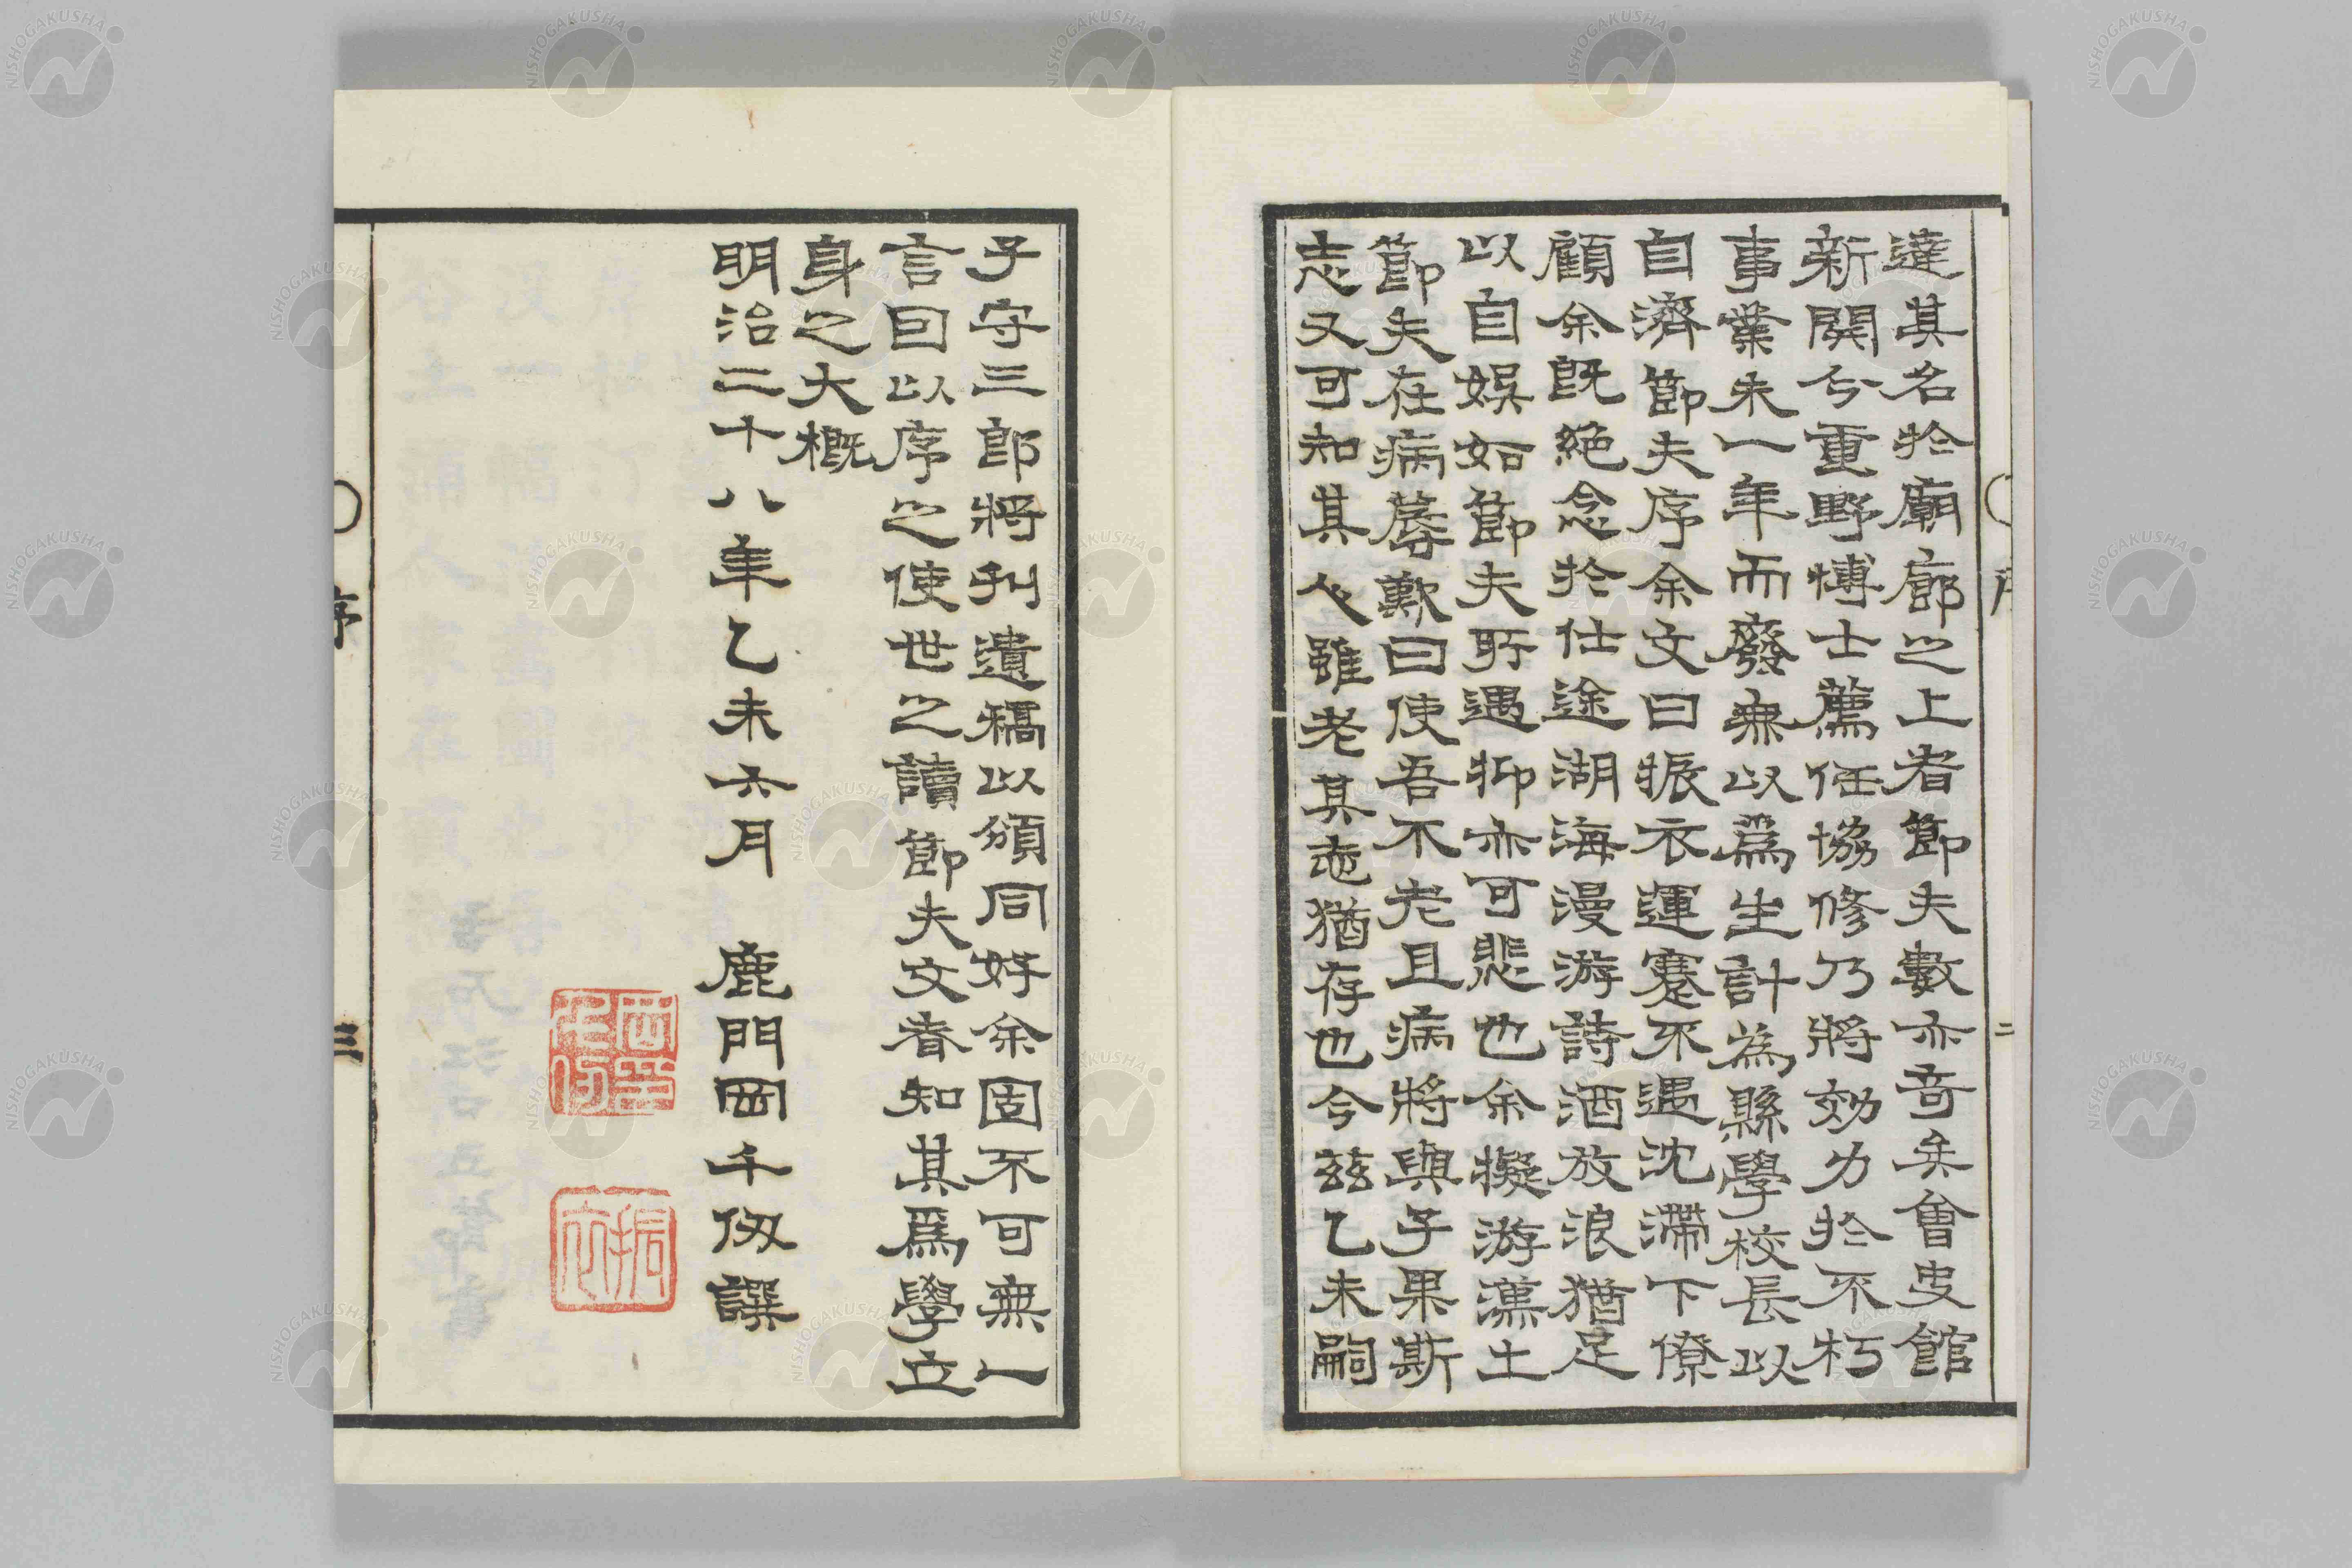 達其名於廟廊之上者節夫數亦奇矣會史館
新開兮重野博士薦任協修乃將效力於不朽
事業未一年而廢無以爲生計爲縣學校長以
自濟節夫序余文曰振衣運蹇不遇沈滯下僚
顧余既絶念於仕途湖海漫游詩酒放浪猶足
以自娛如節夫所遇抑亦可悲也余擬游漢土
節夫在病蓐歎曰使吾不老且病將與子果斯
志又可知其人雖老其志猶存也今茲乙未嗣
序
二
子守三郎將刊遺稿以頒同好余固不可無一
言回以序之使世之讀節夫文者知其爲學立
身之大概
明治二十八年乙未六月　鹿門岡千仞譔
岡千仞
振衣
序
三
NISHOGAKUSHA